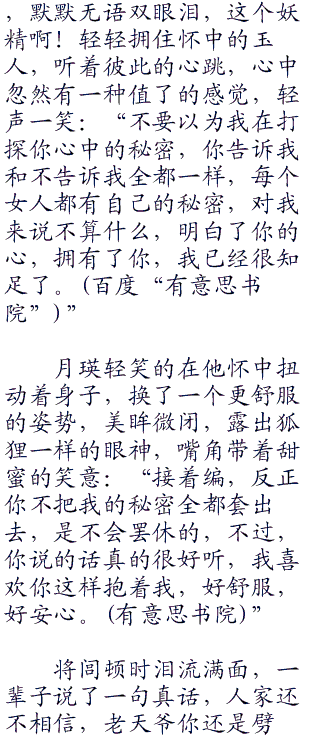 ，默默无语双眼泪，这个妖
精啊！轻轻拥住怀中的玉
人，听着彼此的心跳，心中
忽然有一种值了的感觉，轻
声一笑：“不要以为我在打
探你心中的秘密，你告诉我
和不告诉我全都一样，每个
女人都有自己的秘密，对我
来说不算什么，明白了你的
心，拥有了你，我已经很知
足了。(百度“有意思书
院”)”
月瑛轻笑的在他怀中扭
动着身子，换了一个更舒服
的姿势，美眸微闭，露出狐
狸一样的眼神，嘴角带着甜
蜜的笑意：“接着编，反正
你不把我的秘密全都套出
去，是不会罢休的，不过，
你说的话真的很好听，我喜
欢你这样抱着我，好舒服，
好安心。(有意思书院)”
将闾顿时泪流满面，一
辈子说了一句真话，人家还
不相信，老天爷你还是劈